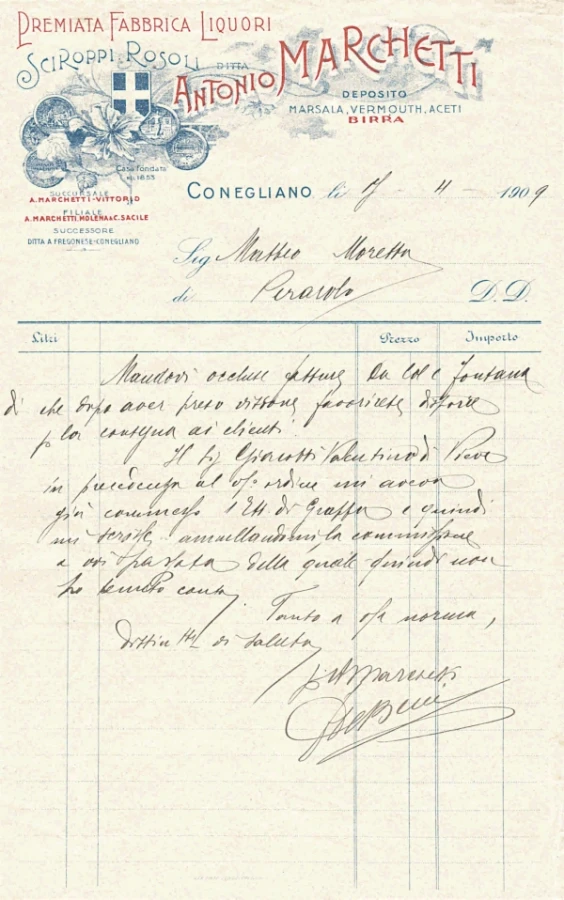 PREMIATA FABBRICA LIQUORI
SCIROPPI E ROSOLI
DITTA
ANTONIO MARCHETTI
DEPOSITO
MARSALA, VERMOUTH, ACETI
BIRRA
Casa fondata
n. 1853
SUCCURSALE
A. MARCHETTI-VITTORIO
FILIALE
A. MARCHETTI, MOLENA & C. SACILE
SUCCESSORE
DITTA A FREGONESE-CONEGLIANO
CONEGLIANO, li 17 - 4 - 1909
Sig Matteo Moretta
di Perarolo D. D.
Litri Prezzo Importo
Mandovi accluse fatture Da Col e Fontana
che dopo aver preso visione favorirete
p la consegna ai clienti.
Il Sig Giacotti Valentino di Pieve
in precedenza al ordine mi aveva
già commesso 1 Ett. di Grappa e quindi
mi scrisse annullandomi la commissione
a voi passata della quale quindi non
ho tenuto conto.
Tanto a norma,
di saluto
p A Marchetti